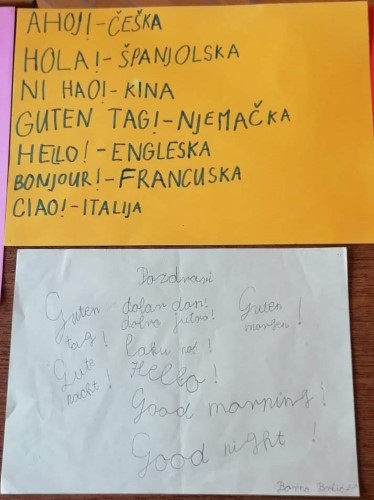 AHOJ!-ČEŠKA
HOLA!-ŠPANJOLSKA
NI HAO!-KINA
GUTEN TAG!-NJEMAČKA
HELLO!-ENGLESKA
BONJOUR!-FRANCUSKA
CIAO!-ITALIJA
Pozdravi
Guten tag!
dobar dan!
dobro jutro!
Guten morgen!
Gute nacht!
laku noć!
Hello!
Good morning!
Good night!
Borna